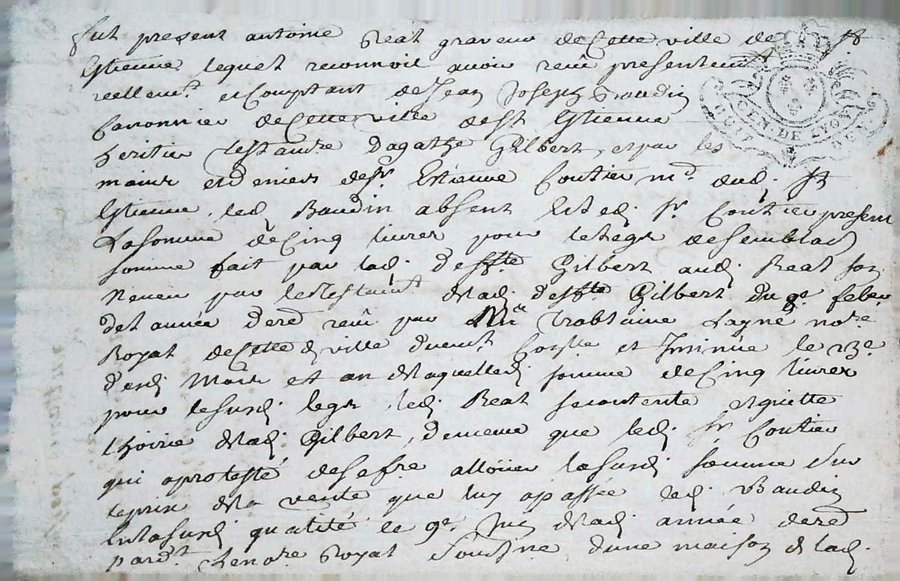 fut present antoine Reat graveur de Cette ville de St
Estienne lequel reconnoit avoir reçû presentement
reellemt et Comptant de Jean Joseph Baudin
Canonnier de Cette ville de St Estienne
heritier testam.re d'agathe Gilbert, et par les
mains et deniers de Sr Estienne Coutier md dud. St
Estienne, led. Baudin absent led. Sr Coutier present
La somme de Cinq livres pour le legs de semblab
somme fait par lad. deffte Gilbert aud. Reat son
Neveu par le testamt de lad. deffte Gilbert du 9e feber
de l'année der reçû par Me L'ayné nore
Royal de Cette d. ville duement Conlle et Insinué le 13e
desd. mois et an de laquelled. somme de Cinq livres
pour le susd. legs led. Reat se contente et quitte
L'hoirie de lad. Gilbert, de meme que led. Sr Coutier
qui a protesté de se fre allöuer la susd. somme sur
le prix de la vente que luy a passée led. Baudin
En la susd. qualité le 9e de lad. année der
pardt Le nore Royal Sousigne, d'une maison de lad.
GEN. DE LYON